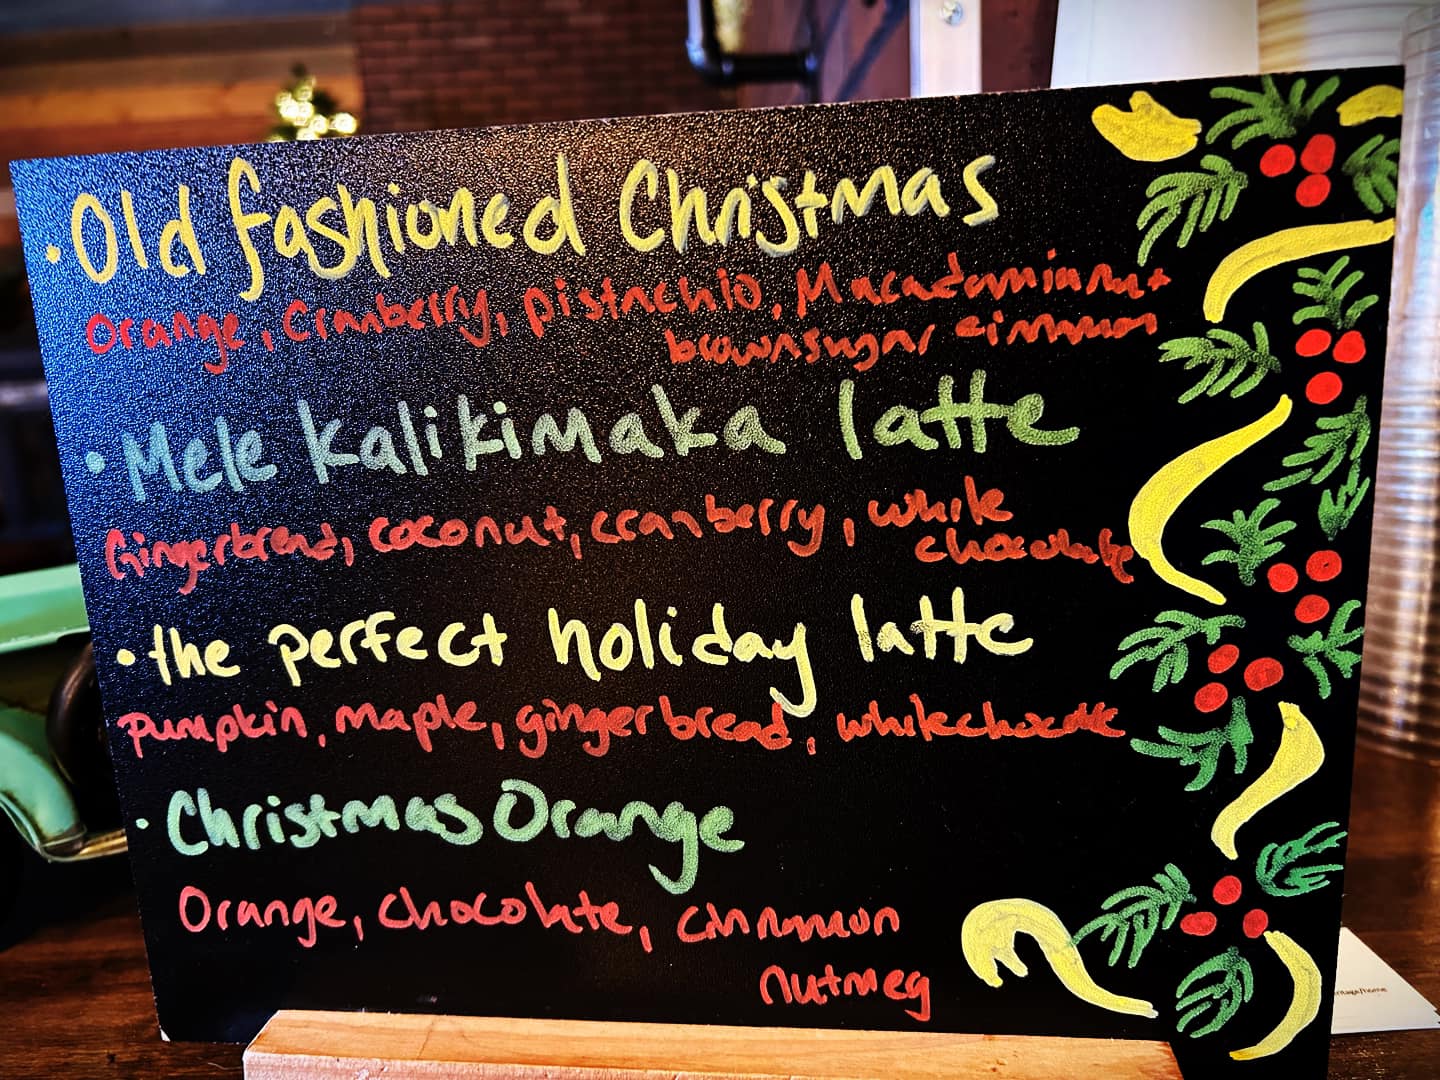 • Old fashioned Christmas
Orange, Cranberry, pistachio, Macadamia nut
brown sugar cinnamon
• Mele kalikimaka latte
Gingerbread, coconut, cranberry, white
chocolate
• the perfect holiday latte
pumpkin, maple, gingerbread, white chocolate
• Christmas Orange
Orange, chocolate, cinnamon
nutmeg